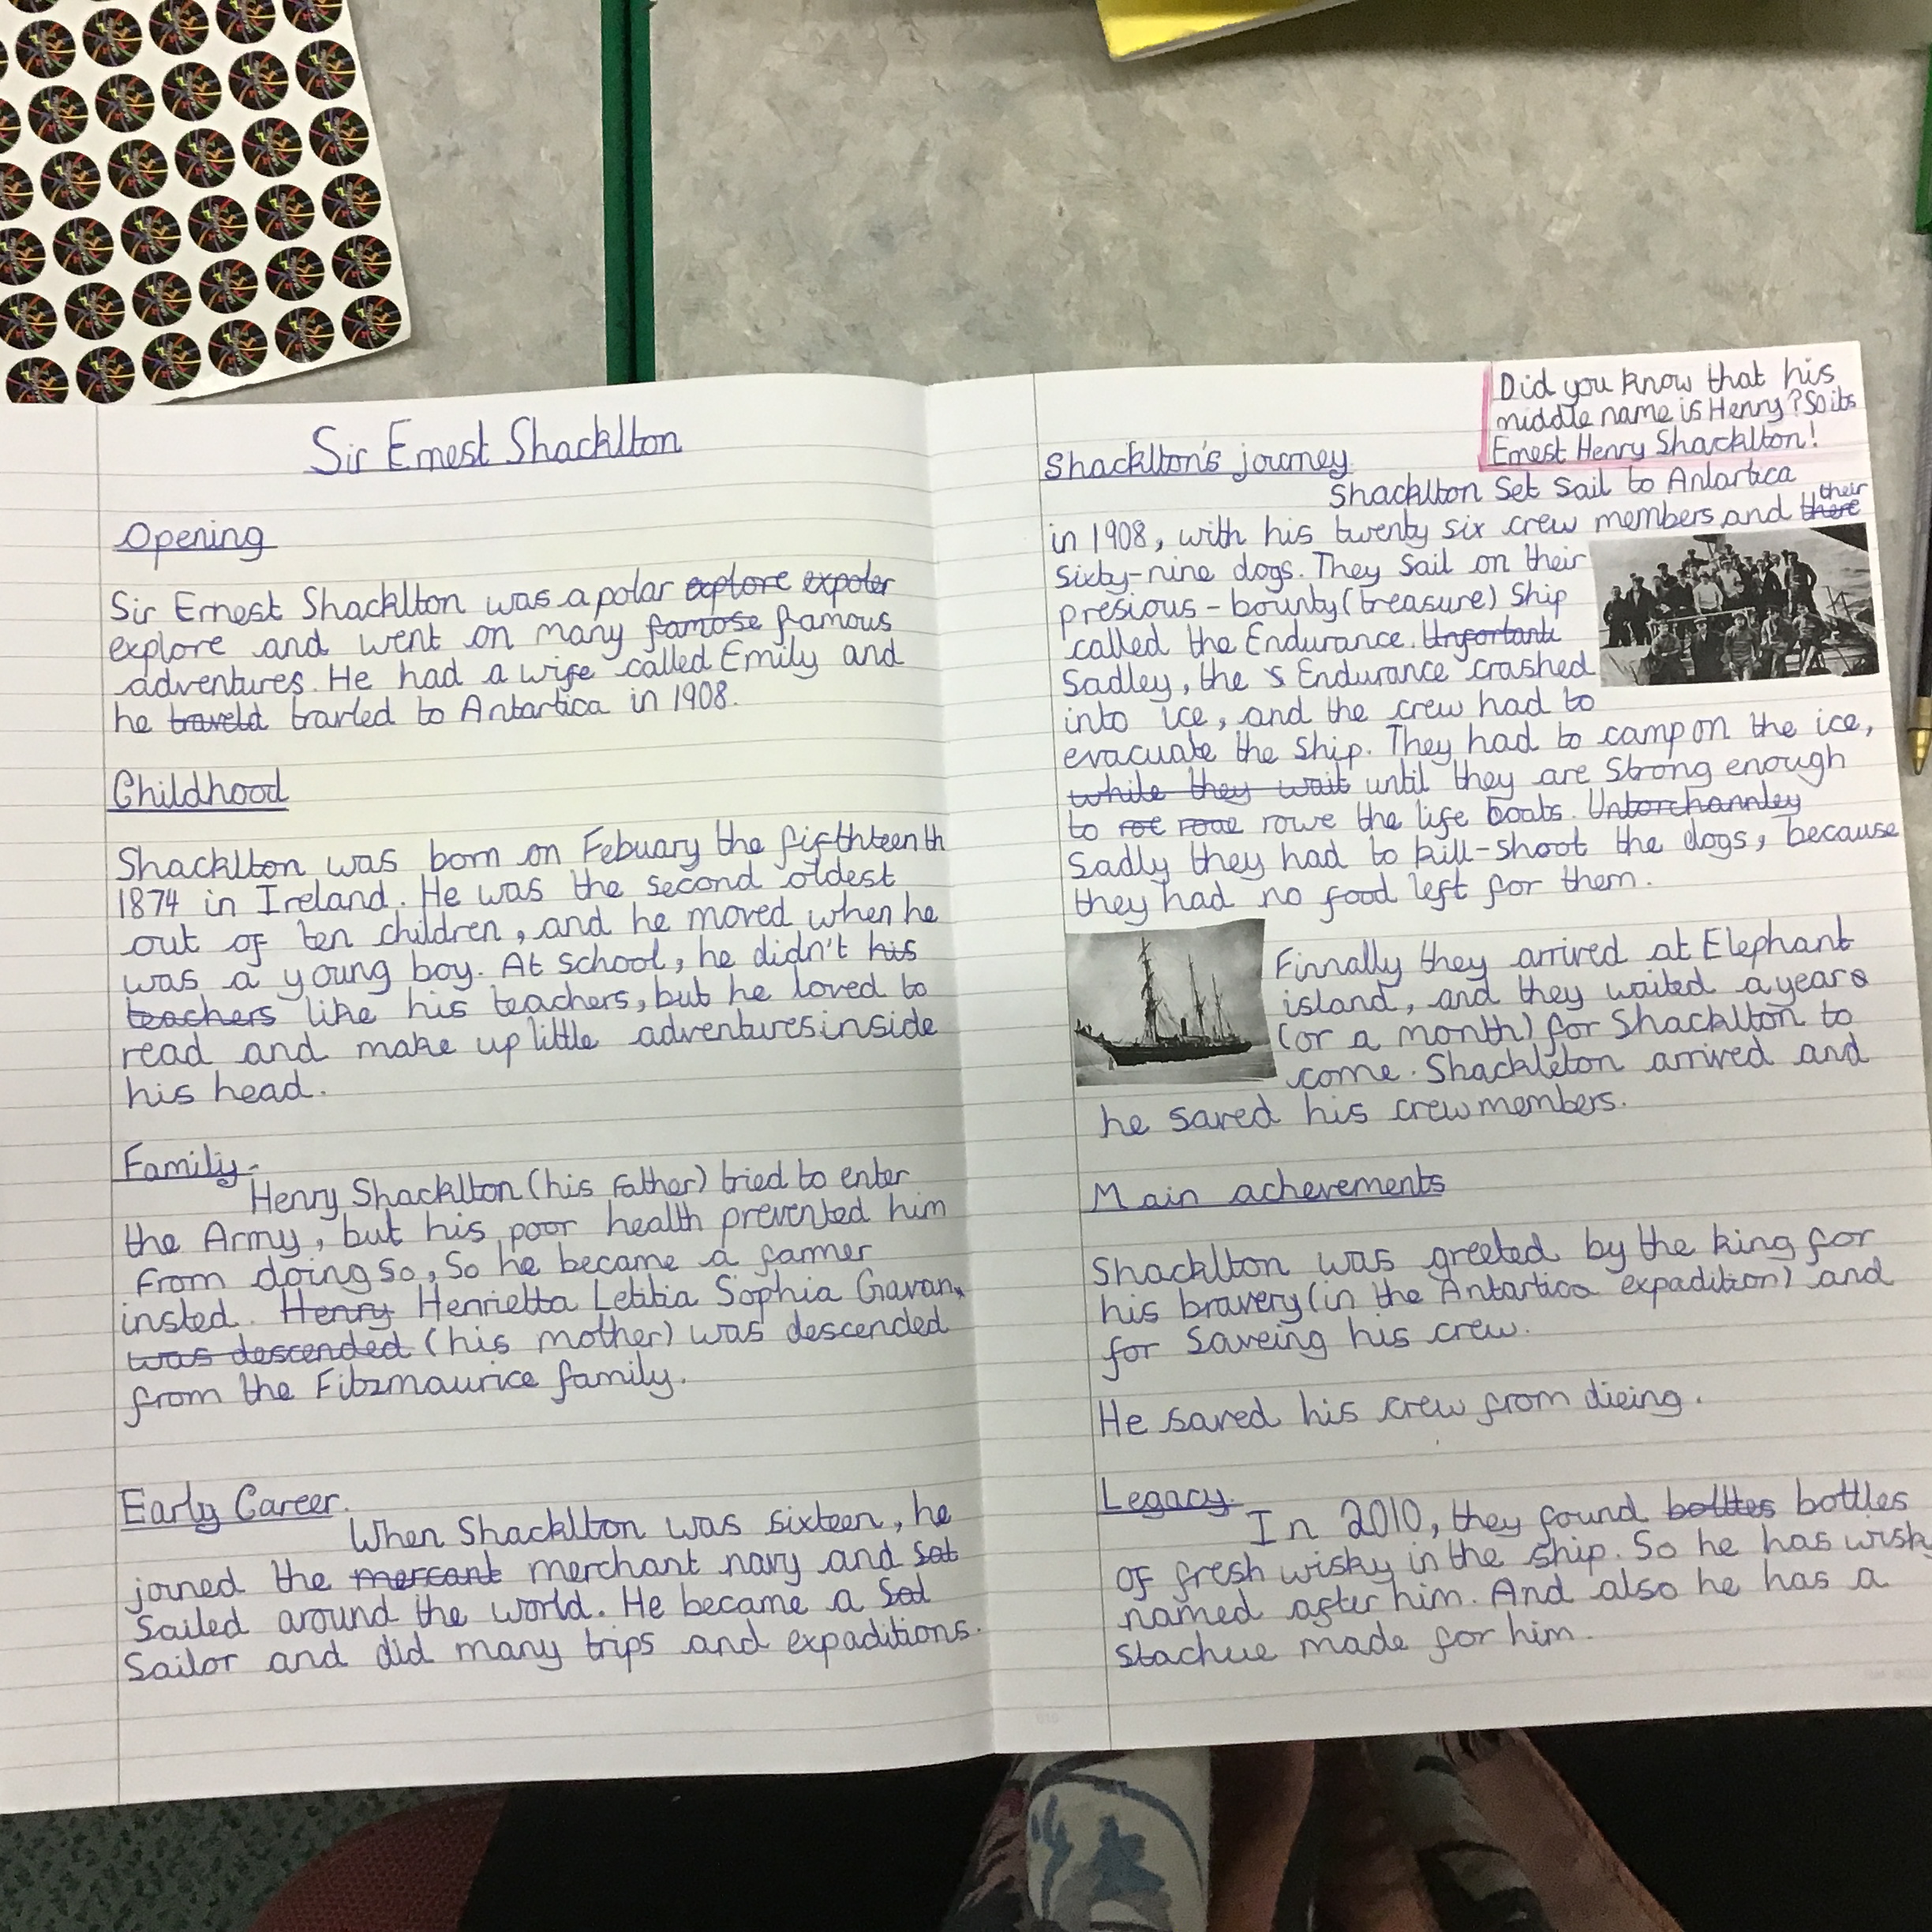 Sir Ernest Shacklton
Opening
Sir Ernest Shacklton was a polar explore expoler
explore and went on many famose famous
adventures. He had a wife called Emily and
he traveld travled to Antartica in 1908.
Childhood
Shacklton was born on Febuary the fifthteenth
1874 in Ireland. He was the second oldest
out of ten children, and he moved when he
was a young boy. At school, he didn't his
teachers like his teachers, but he loved to
read and make up little adventures inside
his head.
Family
Henry Shacklton (his father) tried to enter
the Army, but his poor health prevented him
from doing so, So he became a farmer
insted. Henry Henrietta Letitia Sophia Gavan
was descended (his mother) was descended
from the Fitzmaurice family.
Early Career.
When Shacklton was sixteen, he
joined the mercant merchant navy and sat
Sailed around the world. He became a Sad
Sailor and did many trips and expaditions.
Did you know that his
middle name is Henry? So its
Ernest Henry Shacklton!
Shacklton's journey
Shacklton Set Sail to Antartica
in 1908, with his twenty six crew members and there their
sixty-nine dogs. They Sail on their
presious-bounty (treasure) Ship
called the Endurance. Unfortant
Sadley, the s Endurance crashed
into ice, and the crew had to
evacuate the Ship. They had to camp on the ice,
while they wait until they are Strong enough
to roe roae rowe the life boats. Untorchannley
Sadly they had to kill-shoot the dogs, because
they had no food left for them.
Finnally they arrived at Elephant
island, and they waited a years
(or a month) for Shacklton to
come. Shackleton arrived and
he saved his crew members.
Main achevements
Shacklton was greeted by the king for
his bravery (in the Antartica expadition) and
for Saveing his crew.
He saved his crew from dieing.
Legacy
In 2010, they found bolltes bottles
of fresh wisky in the ship. So he has wisk
named after him. And also he has a
Stachue made for him.